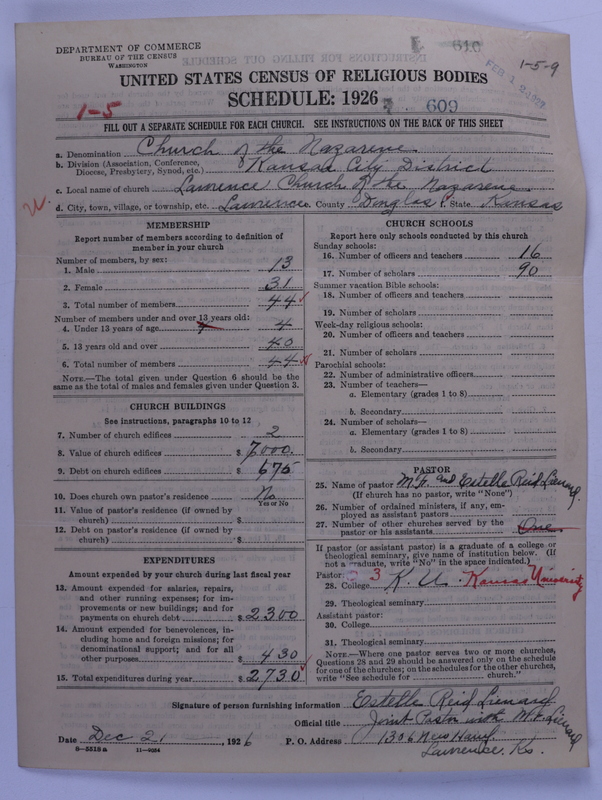 DEPARTMENT OF COMMERCE
BUREAU OF THE CENSUS
WASHINGTON
610
FEB 12 1927
1-5-9
UNITED STATES CENSUS OF RELIGIOUS BODIES
SCHEDULE: 1926
1-5
609
FILL OUT A SEPARATE SCHEDULE FOR EACH CHURCH. SEE INSTRUCTIONS ON THE BACK OF THIS SHEET
a. Denomination Church of the Nazarene
b. Division (Association, Conference, Diocese, Presbytery, Synod, etc.) Kansas City District
c. Local name of church Lawrence Church of the Nazarene
d. City, town, village, or township, etc. Lawrence County Douglas State Kansas
MEMBERSHIP
Report number of members according to definition of
member in your church
Number of members, by sex:
1. Male 13
2. Female 31
3. Total number of members 44
Number of members under and over 13 years old:
4. Under 13 years of age 4
5. 13 years old and over 40
6. Total number of members 44
NOTE.—The total given under Question 6 should be the
same as the total of males and females given under Question 3.
CHURCH BUILDINGS
See instructions, paragraphs 10 to 12
7. Number of church edifices 2
8. Value of church edifices $ 7000.
9. Debt on church edifices $ 675
10. Does church own pastor's residence No
Yes or No
11. Value of pastor's residence (if owned by
church) $
12. Debt on pastor's residence (if owned by
church) $
EXPENDITURES
Amount expended by your church during last fiscal year
13. Amount expended for salaries, repairs,
and other running expenses; for im-
provements or new buildings; and for
payments on church debt $ 2300
14. Amount expended for benevolences, in-
cluding home and foreign missions; for
denominational support; and for all
other purposes $ 430
15. Total expenditures during year $ 2730
CHURCH SCHOOLS
Report here only schools conducted by this church
Sunday schools:
16. Number of officers and teachers 16
17. Number of scholars 90
Summer vacation Bible schools:
18. Number of officers and teachers
19. Number of scholars
Week-day religious schools:
20. Number of officers and teachers
21. Number of scholars
Parochial schools:
22. Number of administrative officers
23. Number of teachers—
a. Elementary (grades 1 to 8)
b. Secondary
24. Number of scholars—
a. Elementary (grades 1 to 8)
b. Secondary
PASTOR
25. Name of pastor M.F. and Estelle Reid Lienard
(If church has no pastor, write "None")
26. Number of ordained ministers, if any, em-
ployed as assistant pastors
27. Number of other churches served by the
pastor or his assistants One
If pastor (or assistant pastor) is a graduate of a college or
theological seminary, give name of institution below. (If
not a graduate, write "No" in the space indicated.)
Pastor:
28. College 3 K. U. Kansas University
29. Theological seminary
Assistant pastor:
30. College
31. Theological seminary
NOTE.—Where one pastor serves two or more churches,
Questions 28 and 29 should be answered only on the schedule
for one of the churches; on the schedules for the other churches,
write "See schedule for church."
Signature of person furnishing information Estelle Reid Lienard
Official title Joint Pastor with M.F. Lienard
Date Dec 21, 1926 P. O. Address 1306 New Hamp.
8—5518a 11—9024 Lawrence, Ks.